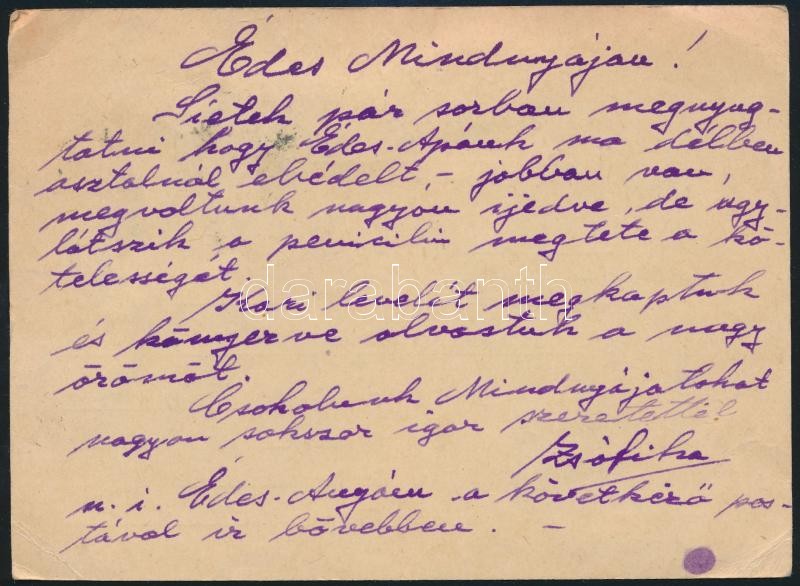 Édes Mindnyájan!
Sietek pár sorban megnyug-
tatni hogy Édes-Apánk ma délben
asztalnál ebédelt, - jobban van,
megvoltunk nagyon ijedve, de úgy-
látszik a penicilin megtete a kö-
telességét.
darabanth
levelét megkaptuk
és könnyezve olvastuk a nagy
örömöt.
Csokolunk Mindnyájatokat
nagyon sokszor igaz szeretettel
Zsófika
u. i. Édes-Anyám a következő pos-
tával ír bővebben. -